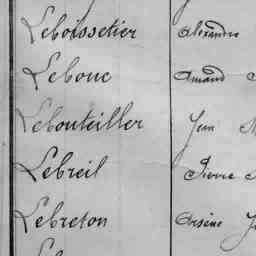 Leboissetier Alexandre
Lebouc Amand
Lebouteiller Jean
Lebreil Pierre
Lebreton Arsène